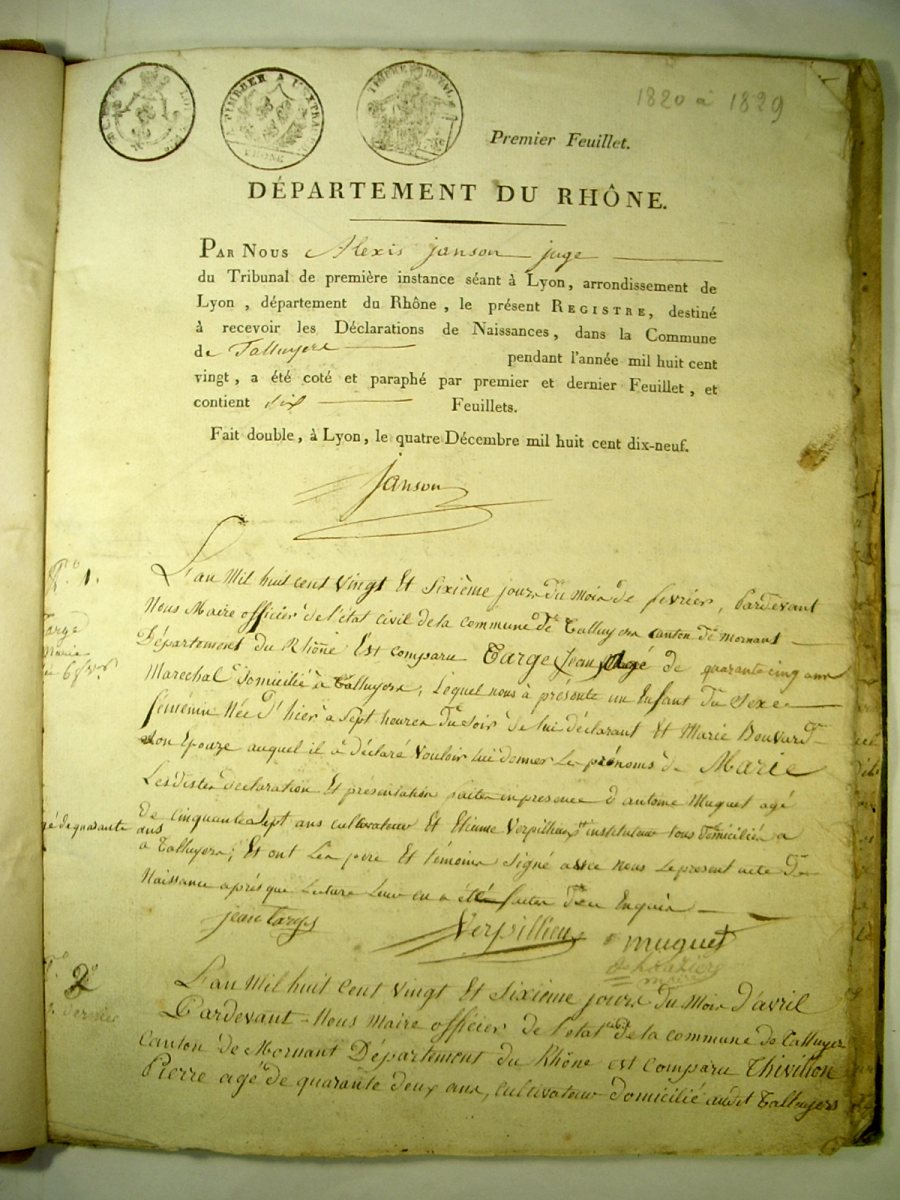 1820 à 1829
TIMBRE ROYAL
A TIMBRER A L'EXTRA
RHONE
Premier Feuillet.
DÉPARTEMENT DU RHÔNE.
PAR NOUS Alexis janson juge
du Tribunal de première instance séant à Lyon, arrondissement de
Lyon, département du Rhône, le présent REGISTRE, destiné
à recevoir les Déclarations de Naissances, dans la Commune
de Talluyers pendant l'année mil huit cent
vingt, a été coté et paraphé par premier et dernier Feuillet, et
contient six Feuillets.
Fait double, à Lyon, le quatre Décembre mil huit cent dix-neuf.
janson
N.º 1.
Targe
Marie
L'an Mil huit cent Vingt Et Sixième jour du Mois de février, Pardevant
Nous Maire officier de l'état civil de la commune de Talluyers canton de Mornant
Département du Rhône Est comparu Targe Jean Agé de quarante cinq ans
Marechal Domicilié à Talluyers, lequel nous a présenté un Enfant du Sexe
féminin Née D'hier à Sept heures du Soir de lui déclarant Et Marie Bouvard
son Epouze auquel il a déclaré Vouloir lui donner les prénoms de Marie
Les dites déclaration Et présentation faites en presence d'antoine Muguet agé
De cinquante sept ans cultivateur Et Etienne Verpillieu instituteur tous domiciliés a
agé de quarante
ans
a Talluyers; Et ont Les pere Et témoins Signé avec nous le present acte de
Naissance aprés que lecture leur en a été faite
jean Targe
Verpillieu
muguet
N.º 2
L'an Mil huit cent Vingt Et Sixième jours du Mois d'avril
Pardevant Nous Maire officier de l'etat civil de la commune de Talluyers
Canton de Mornant Département du Rhône est comparu Thivillon
Pierre agé de quarante deux ans, cultivateur domicilié audit Talluyers